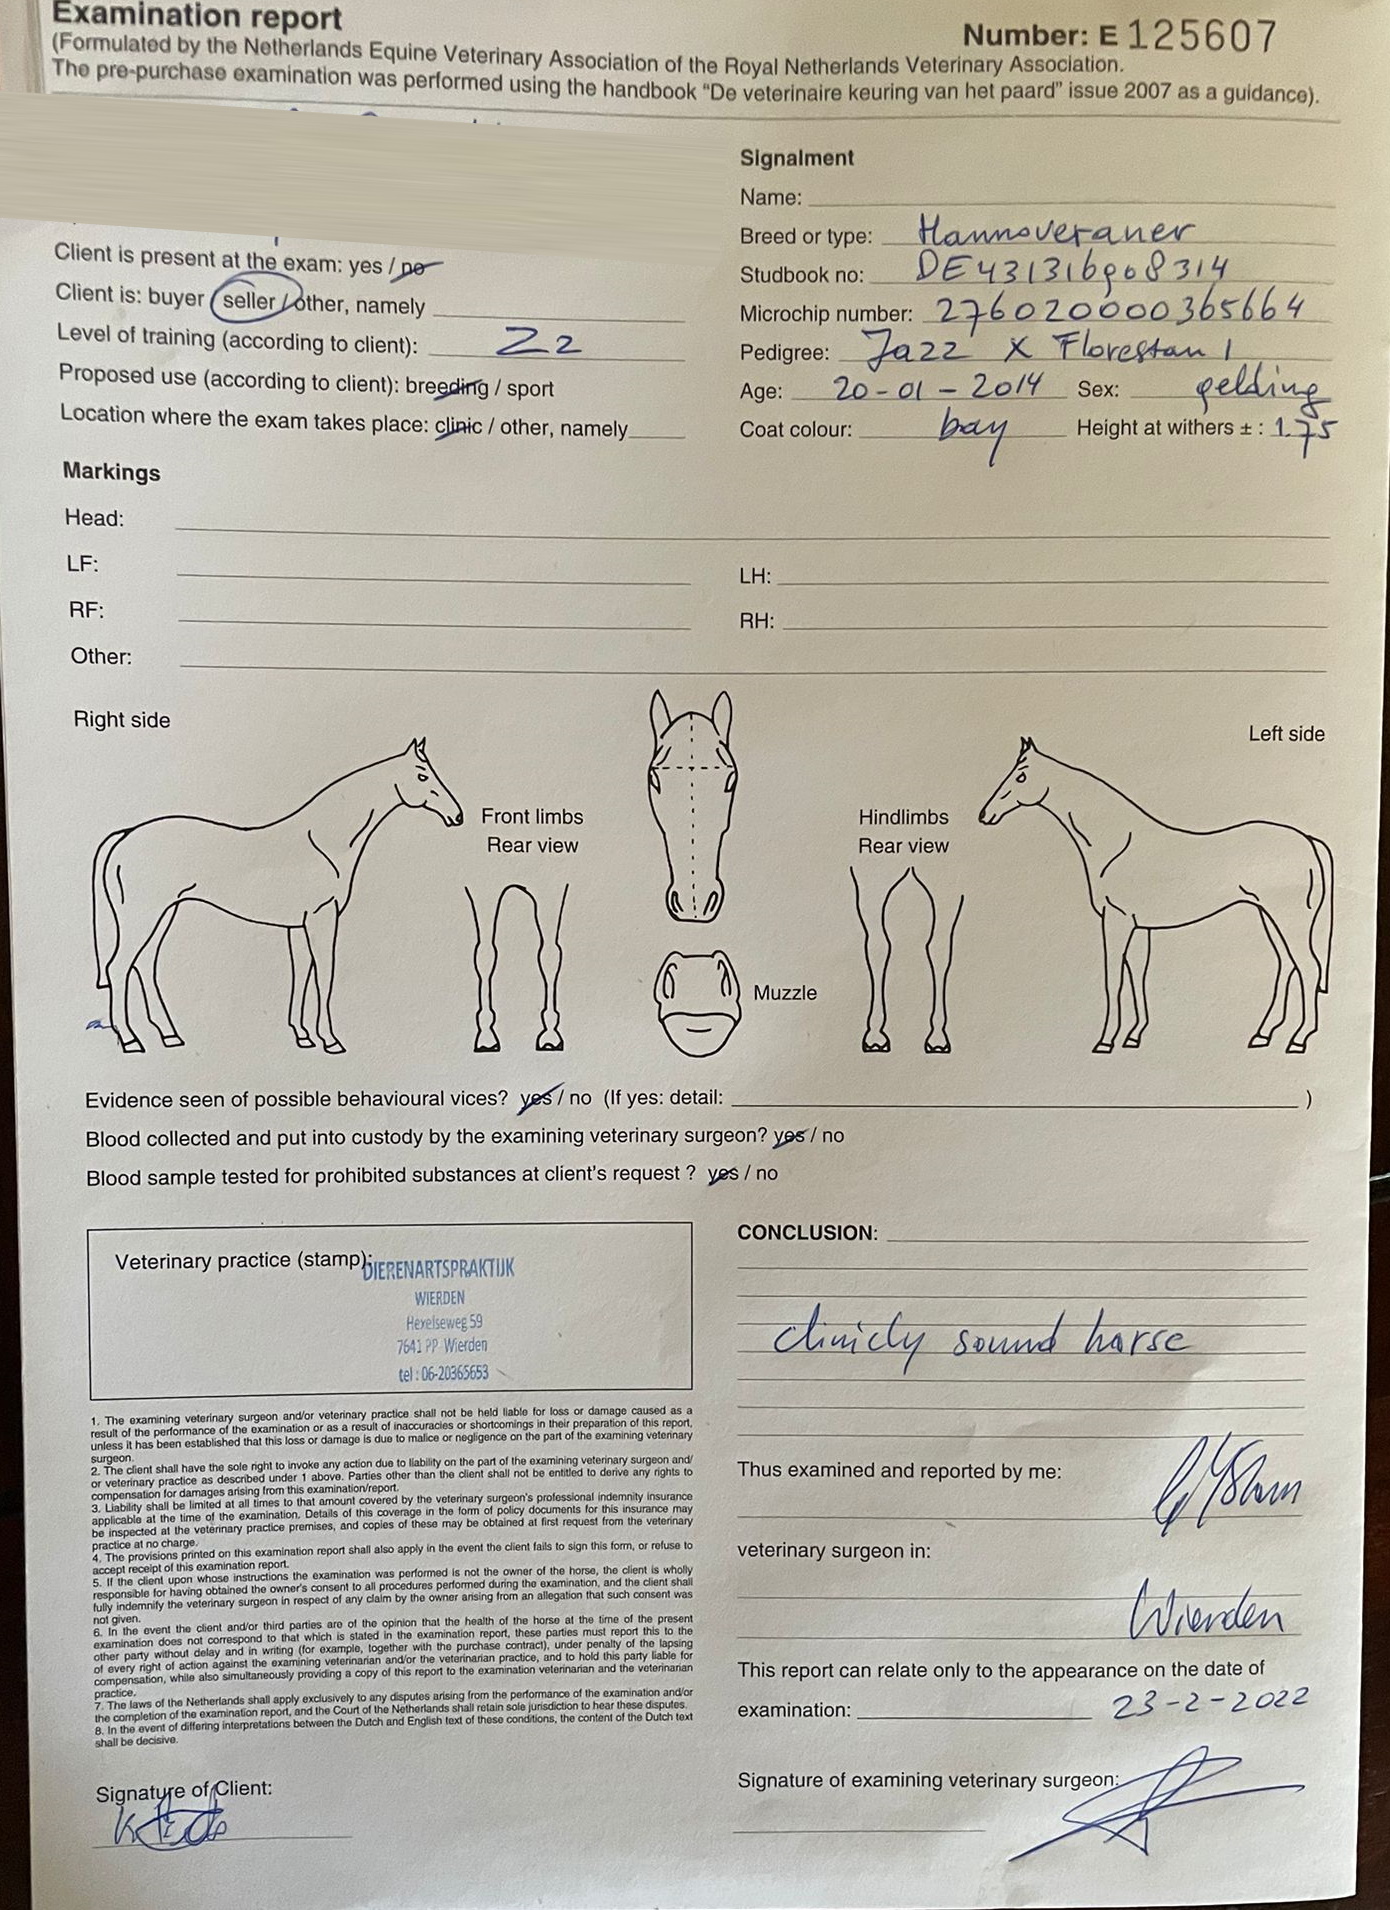 Examination report
Number: E 125607
(Formulated by the Netherlands Equine Veterinary Association of the Royal Netherlands Veterinary Association.
The pre-purchase examination was performed using the handbook “De veterinaire keuring van het paard” issue 2007 as a guidance).
Client is present at the exam: yes / no
Client is: buyer / seller / other, namely
Level of training (according to client): Z2
Proposed use (according to client): breeding / sport
Location where the exam takes place: clinic / other, namely
Signalment
Name:
Breed or type: Hannoveraner
Studbook no: DE431316908314
Microchip number: 276020000365664
Pedigree: Jazz x Florestan I
Age: 20-01-2014 Sex: gelding
Coat colour: bay Height at withers ± : 1.75
Markings
Head:
LF:
LH:
RF:
RH:
Other:
Right side
Left side
Front limbs
Rear view
Hindlimbs
Rear view
Muzzle
Evidence seen of possible behavioural vices? yes / no (If yes: detail: )
Blood collected and put into custody by the examining veterinary surgeon? yes / no
Blood sample tested for prohibited substances at client's request ? yes / no
Veterinary practice (stamp):
DIERENARTSPRAKTIJK
WIERDEN
Hexelseweg 59
7641 PP Wierden
tel : 06-20365653
1. The examining veterinary surgeon and/or veterinary practice shall not be held liable for loss or damage caused as a
result of the performance of the examination or as a result of inaccuracies or shortcomings in their preparation of this report,
unless it has been established that this loss or damage is due to malice or negligence on the part of the examining veterinary
surgeon.
2. The client shall have the sole right to invoke any action due to liability on the part of the examining veterinary surgeon and/
or veterinary practice as described under 1 above. Parties other than the client shall not be entitled to derive any rights to
compensation for damages arising from this examination/report.
3. Liability shall be limited at all times to that amount covered by the veterinary surgeon's professional indemnity insurance
applicable at the time of the examination. Details of this coverage in the form of policy documents for this insurance may
be inspected at the veterinary practice premises, and copies of these may be obtained at first request from the veterinary
practice at no charge.
4. The provisions printed on this examination report shall also apply in the event the client fails to sign this form, or refuse to
accept receipt of this examination report.
5. If the client upon whose instructions the examination was performed is not the owner of the horse, the client is wholly
responsible for having obtained the owner's consent to all procedures performed during the examination, and the client shall
fully indemnify the veterinary surgeon in respect of any claim by the owner arising from an allegation that such consent was
not given.
6. In the event the client and/or third parties are of the opinion that the health of the horse at the time of the present
examination does not correspond to that which is stated in the examination report, these parties must report this to the
other party without delay and in writing (for example, together with the purchase contract), under penalty of the lapsing
of every right of action against the examining veterinarian and/or the veterinarian practice, and to hold this party liable for
compensation, while also simultaneously providing a copy of this report to the examination veterinarian and the veterinarian
practice.
7. The laws of the Netherlands shall apply exclusively to any disputes arising from the performance of the examination and/or
the completion of the examination report, and the Court of the Netherlands shall retain sole jurisdiction to hear these disputes.
8. In the event of differing interpretations between the Dutch and English text of these conditions, the content of the Dutch text
shall be decisive.
Signature of Client:
CONCLUSION:
clinicly sound horse
Thus examined and reported by me:
veterinary surgeon in:
Wierden
This report can relate only to the appearance on the date of
examination: 23-2-2022
Signature of examining veterinary surgeon: